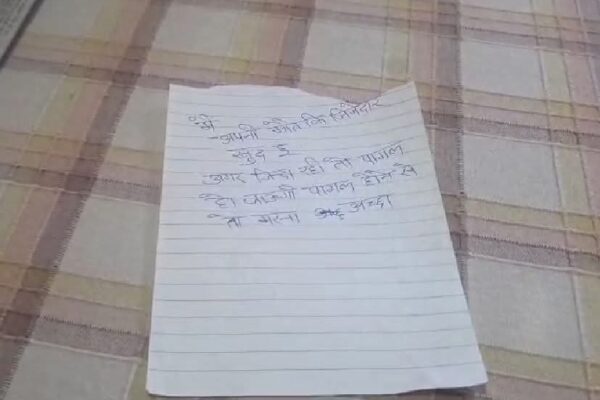 मैं
अपनी मौत कि जिमेदार
खुद हूँ
अगर जिन्दा रही तो पागल
हो जाऊंगी पागल होने से
तो मरना अच्छा